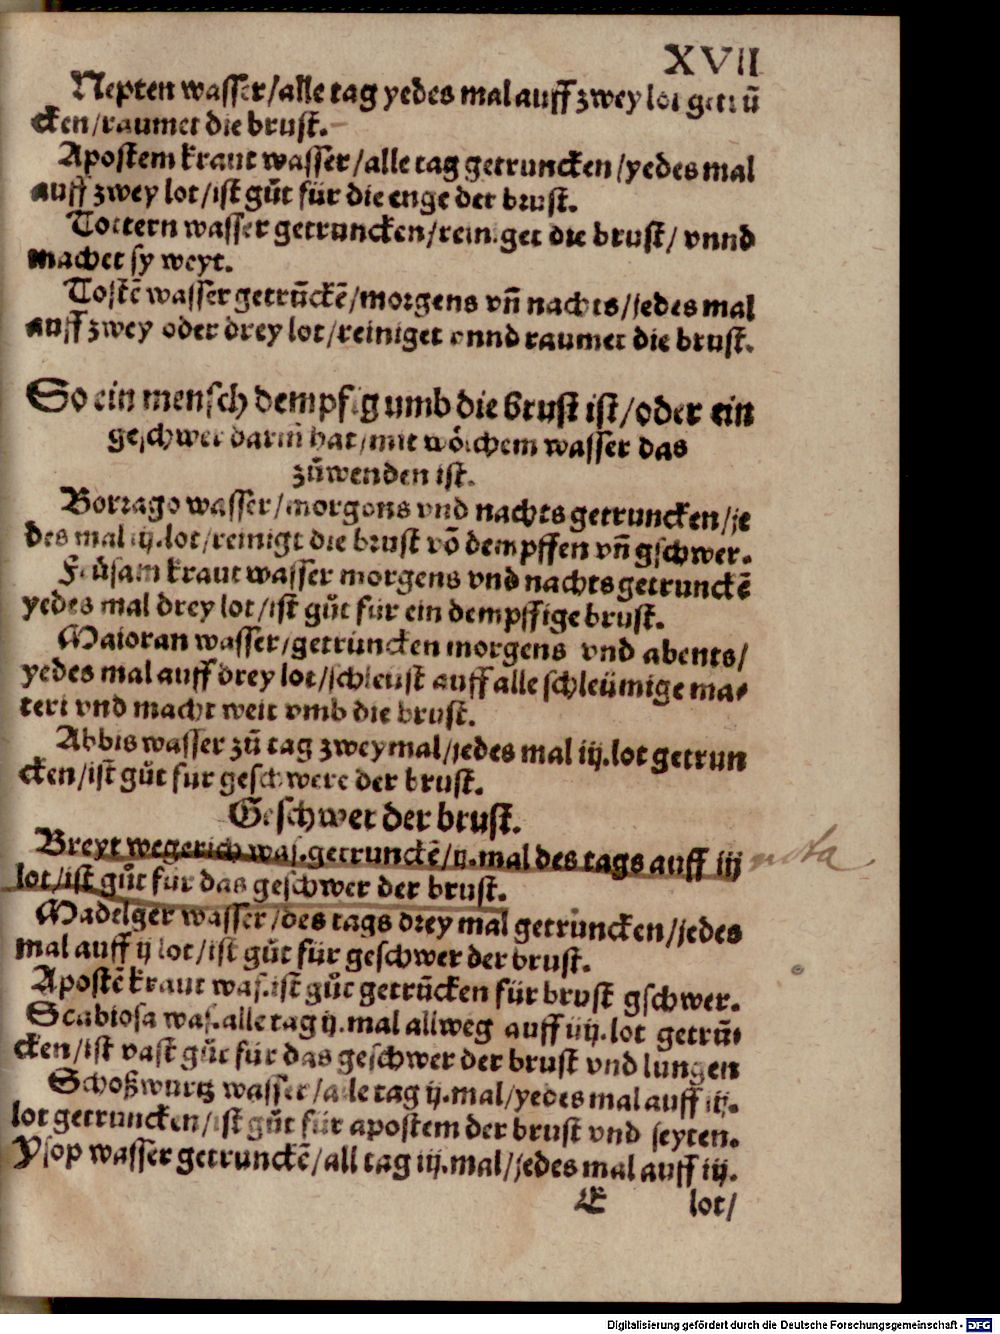 XVII
Nepten wasser/alle tag yedes mal auff zwey lot getrū
cken/raumet die brust.
Apostem kraut wasser/alle tag getruncken/yedes mal
auff zwey lot/ist gůt für die enge der brust.
Tottern wasser getruncken/reiniget die brust/ vnnd
machet sy weyt.
Tostē wasser getrūckē/morgens vn̄ nachts/jedes mal
auff zwey oder drey lot/reiniget vnnd raumet die brust.
So ein mensch dempfig umb die brust ist/oder ein
geschwer darin̄ hat/mit wölchem wasser das
zůwenden ist.
Borrago wasser/morgens vnd nachts getruncken/je
des mal iij.lot/reinigt die brust vō dempffen vn̄ gschwer.
Freüsam kraut wasser morgens vnd nachts getrunckē
yedes mal drey lot/ist gůt für ein dempffige brust.
Maioran wasser/getruncken morgens vnd abents/
yedes mal auff drey lot/schleüst auff alle schleümige ma-
teri vnd macht weit vmb die brust.
Abbis wasser zů tag zweymal/jedes mal iij.lot getrun
cken/ist gůt für geschwere der brust.
Geschwer der brust.
Breyt wegerich was.getrunckē/ij.mal des tags auff iij nota
lot/ist gůt für das geschwer der brust.
Madelger wasser/des tags drey mal getruncken/jedes
mal auff ij lot/ist gůt für geschwer der brust.
Apostē kraut was.ist gůt getrūcken für brust gschwer.
Scabiosa was.alle tag ij.mal allweg auff iiij.lot getrū-
cken/ist vast gůt für das geschwer der brust vnd lungen
Schoßwurtz wasser/alle tag ij.mal/yedes mal auff iij.
lot getruncken/ist gůt für apostem der brust vnd seyten.
Ysop wasser getrunckē/all tag iij.mal/jedes mal auff iij.
E lot/
Digitalisierung gefördert durch die Deutsche Forschungsgemeinschaft - DFG